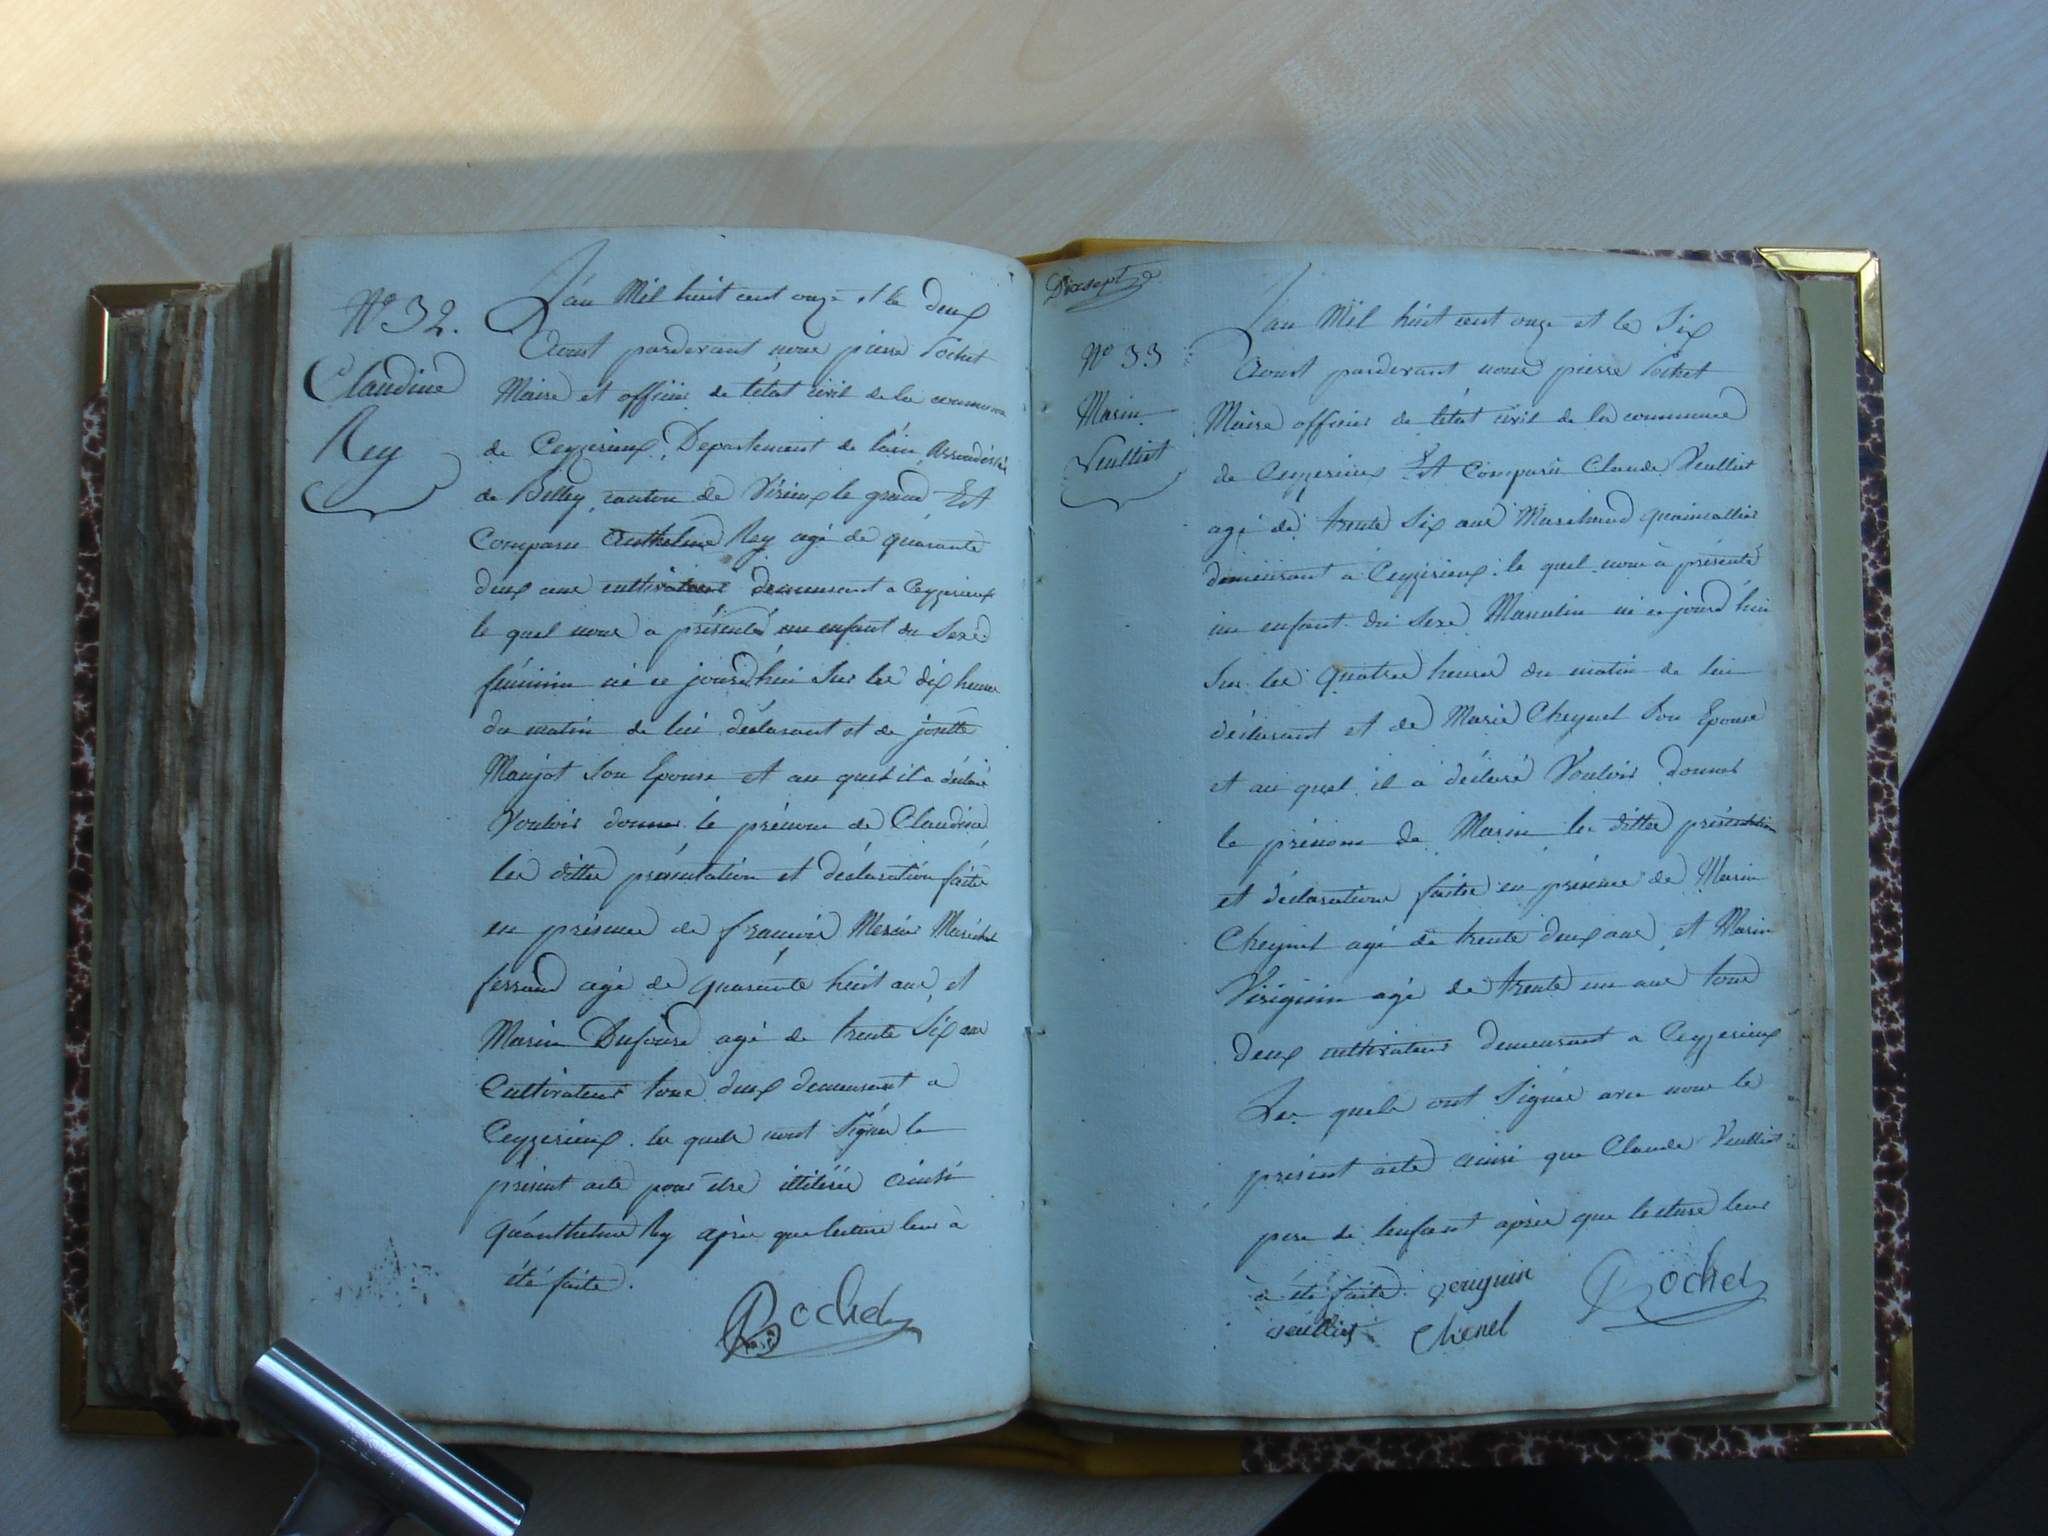 N.º 32.
Claudine
Rey
L'an Mil huit cent onze et le deux
Aoust pardevant nous pierre Rochet
Maire et officier de l'état civil de la commune
de Ceyzerieux, Departement de l'ain,
de Belley, canton de Virieux le grand Est
Comparu Anthelme Rey agé de quarante
deux ans cultivateur demeurant a Ceyzerieux
le quel nous a présenté un enfant du Sexe
féminin né ce jourd'hui Sur les dix heures
du matin de lui déclarant et de josette
Maujot Son Epouse et au quel il a déclaré
Vouloir donner le prénom de Claudine
les dittes présentation et déclaration faite
en présence de francois Mercier Maréchal
ferrand agé de quarante huit ans, et
Marin Dufours agé de trente Six ans
Cultivateur tous deux demeurant a
Ceyzerieux. les quels n'ont Signé le
présent acte pour être illitérés ainsi
qu'anthelme Rey après que lecture leur à
été faite.
Rochet
Dixsept
N.º 33
Marin
Veulliet
L'an Mil huit cent onze et le Six
Aoust pardevant nous pierre Rochet
Maire officier de l'état civil de la commune
de Ceyzerieux Est Comparu Claude Veulliet
agé de trente Six ans Marchand quaincallier
demeurant a Ceyzerieux. le quel nous à présenté
un enfant du Sexe Masculin né ce jourd'hui
Sur les quatres heures du matin de lui
déclarant et de Marie Cheynel Son Epouse
et au quel il a déclaré Vouloir donner
le prénom de Marin les dittes présentation
et déclaration faitte en présence de Marin
Cheynel agé de trente deux ans, et Marin
Vériguin agé de trente un ans tous
deux cultivateurs demeurant a Ceyzerieux
Les quels ont Signés avec nous le
présent acte ainsi que Claude Veulliet
pere de l'enfant après que lecture leur
à été faite. veriguin Rochet
veulliet Chenel